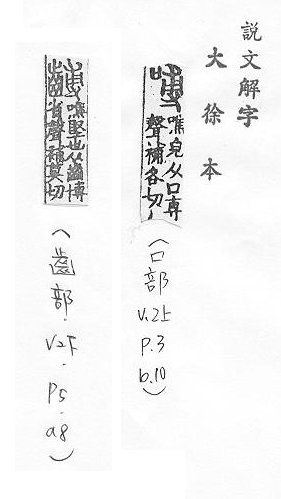 說文解字
大徐本
噍皃从口尃
聲補各切
(口部 V.2上 P.3 b.10)
噍堅也从齒博
省聲補莫切
(齒部.V2下.P5.a8)